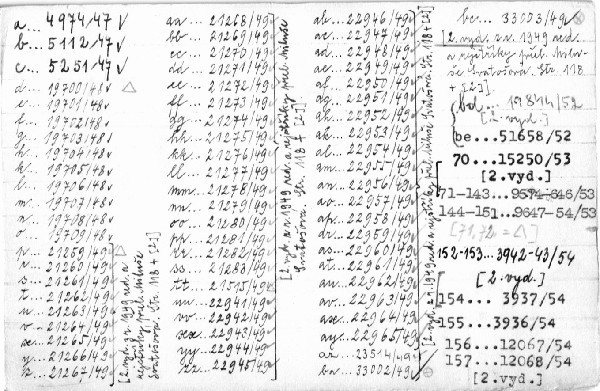 a... 4974/47 ✓
b... 5112/47 ✓
c... 5251/47 ✓
d... 19700/48
e... 19701/48
f... 19702/48
g... 19703/48
h... 19704/48
k... 19705/48
l... 19706/48
m... 19707/48
n... 19708/48
o... 19709/48
p... 21259/49
r... 21260/49
s... 21261/49
t... 21262/49
u... 21263/49
v... 21264/49
x... 21265/49
y... 21266/49
z... 21267/49
aa... 21268/49
bb... 21269/49
cc... 21270/49
dd... 21271/49
ee... 21272/49
ff... 21273/49
gg... 21274/49
hh... 21275/49
kk... 21276/49
ll... 21277/49
mm... 21278/49
nn... 21279/49
oo... 21280/49
pp... 21281/49
rr... 21282/49
ss... 21283/49
tt... 21515/49
uu... 22941/49
vv... 22942/49
xx... 22943/49
yy... 22944/49
zz... 22945/49
ab... 22946/49
ac... 22947/49
ad... 22948/49
ae... 22949/49
af... 22950/49
ag... 22951/49
ah... 22952/49
ak... 22953/49
al... 22954/49
am... 22955/49
an... 22956/49
ao... 22957/49
ap... 22958/49
ar... 22959/49
as... 22960/49
at... 22961/49
au... 22962/49
av... 22963/49
ax... 22964/49
ay... 22965/49
az... 23514/49
ba... 33002/49
bc... 33003/49
[2. vyd. z r. 1949 red.
a rejstříky
Str. 118
+ [2].
bd...
[2. vyd.]
be...51658/52
70...15250/53
[2.vyd.]
71-143...9574-646/53
144-151...9647-54/53
[71,72 = △]
152-153...3942-43/54
[2. vyd.]
154... 3937/54
155...3936/54
156...12067/54
157...12068/54
[2.vyd.]